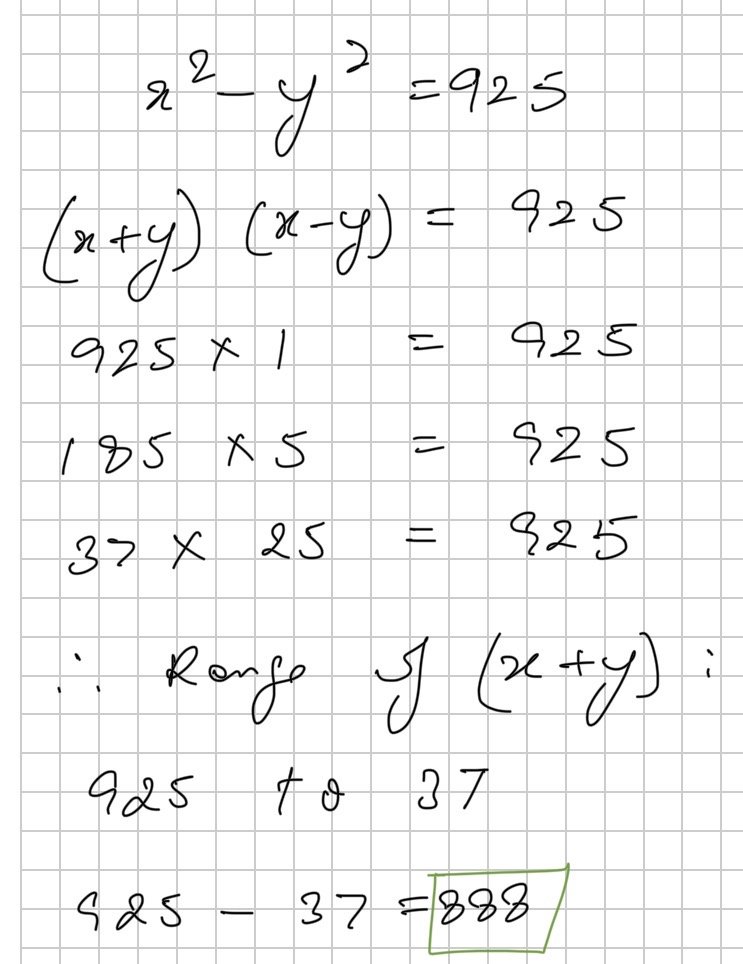 x² - y² = 925
(x+y) (x-y) = 925
925 × 1 = 925
185 × 5 = 925
37 × 25 = 925
∴ Range of (x+y) :
925 to 37
925 - 37 = 888